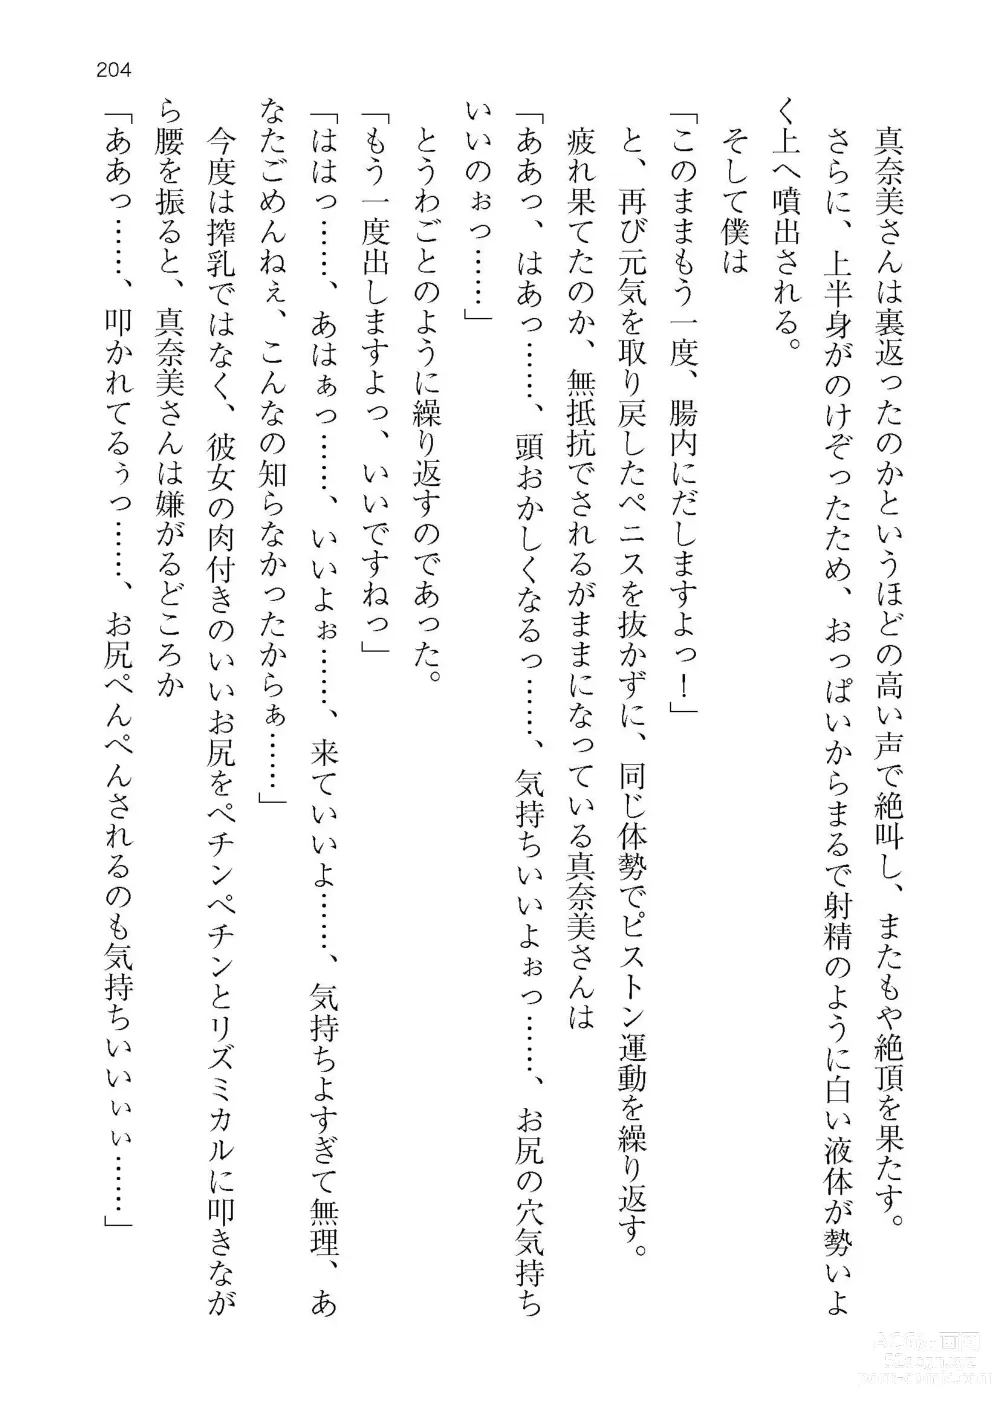 204
真奈美さんは裏返ったのかというほどの高い声で絶叫し、またもや絶頂を果たす。
さらに、上半身がのけぞったため、おっぱいからまるで射精のように白い液体が勢いよ
く上へ噴出される。
そして僕は
「このままもう一度、腸内にだしますよっ！」
と、再び元気を取り戻したペニスを抜かずに、同じ体勢でピストン運動を繰り返す。
疲れ果てたのか、無抵抗でされるがままになっている真奈美さんは
「ああっ、はあっ……、頭おかしくなるっ……、気持ちいいよぉっ……、お尻の穴気持ち
いいのぉっ……」
とうわごとのように繰り返すのであった。
「もう一度出しますよっ、いいですねっ」
「ははっ……、あはぁっ……、いいよぉ……、来ていいよ……、気持ちよすぎて無理、あ
なたごめんねぇ、こんなの知らなかったからぁ……」
今度は搾乳ではなく、彼女の肉付きのいいお尻をペチンペチンとリズミカルに叩きなが
ら腰を振ると、真奈美さんは嫌がるどころか
「ああっ……、叩かれてるぅっ……、お尻ぺんぺんされるのも気持ちいいぃぃ……」